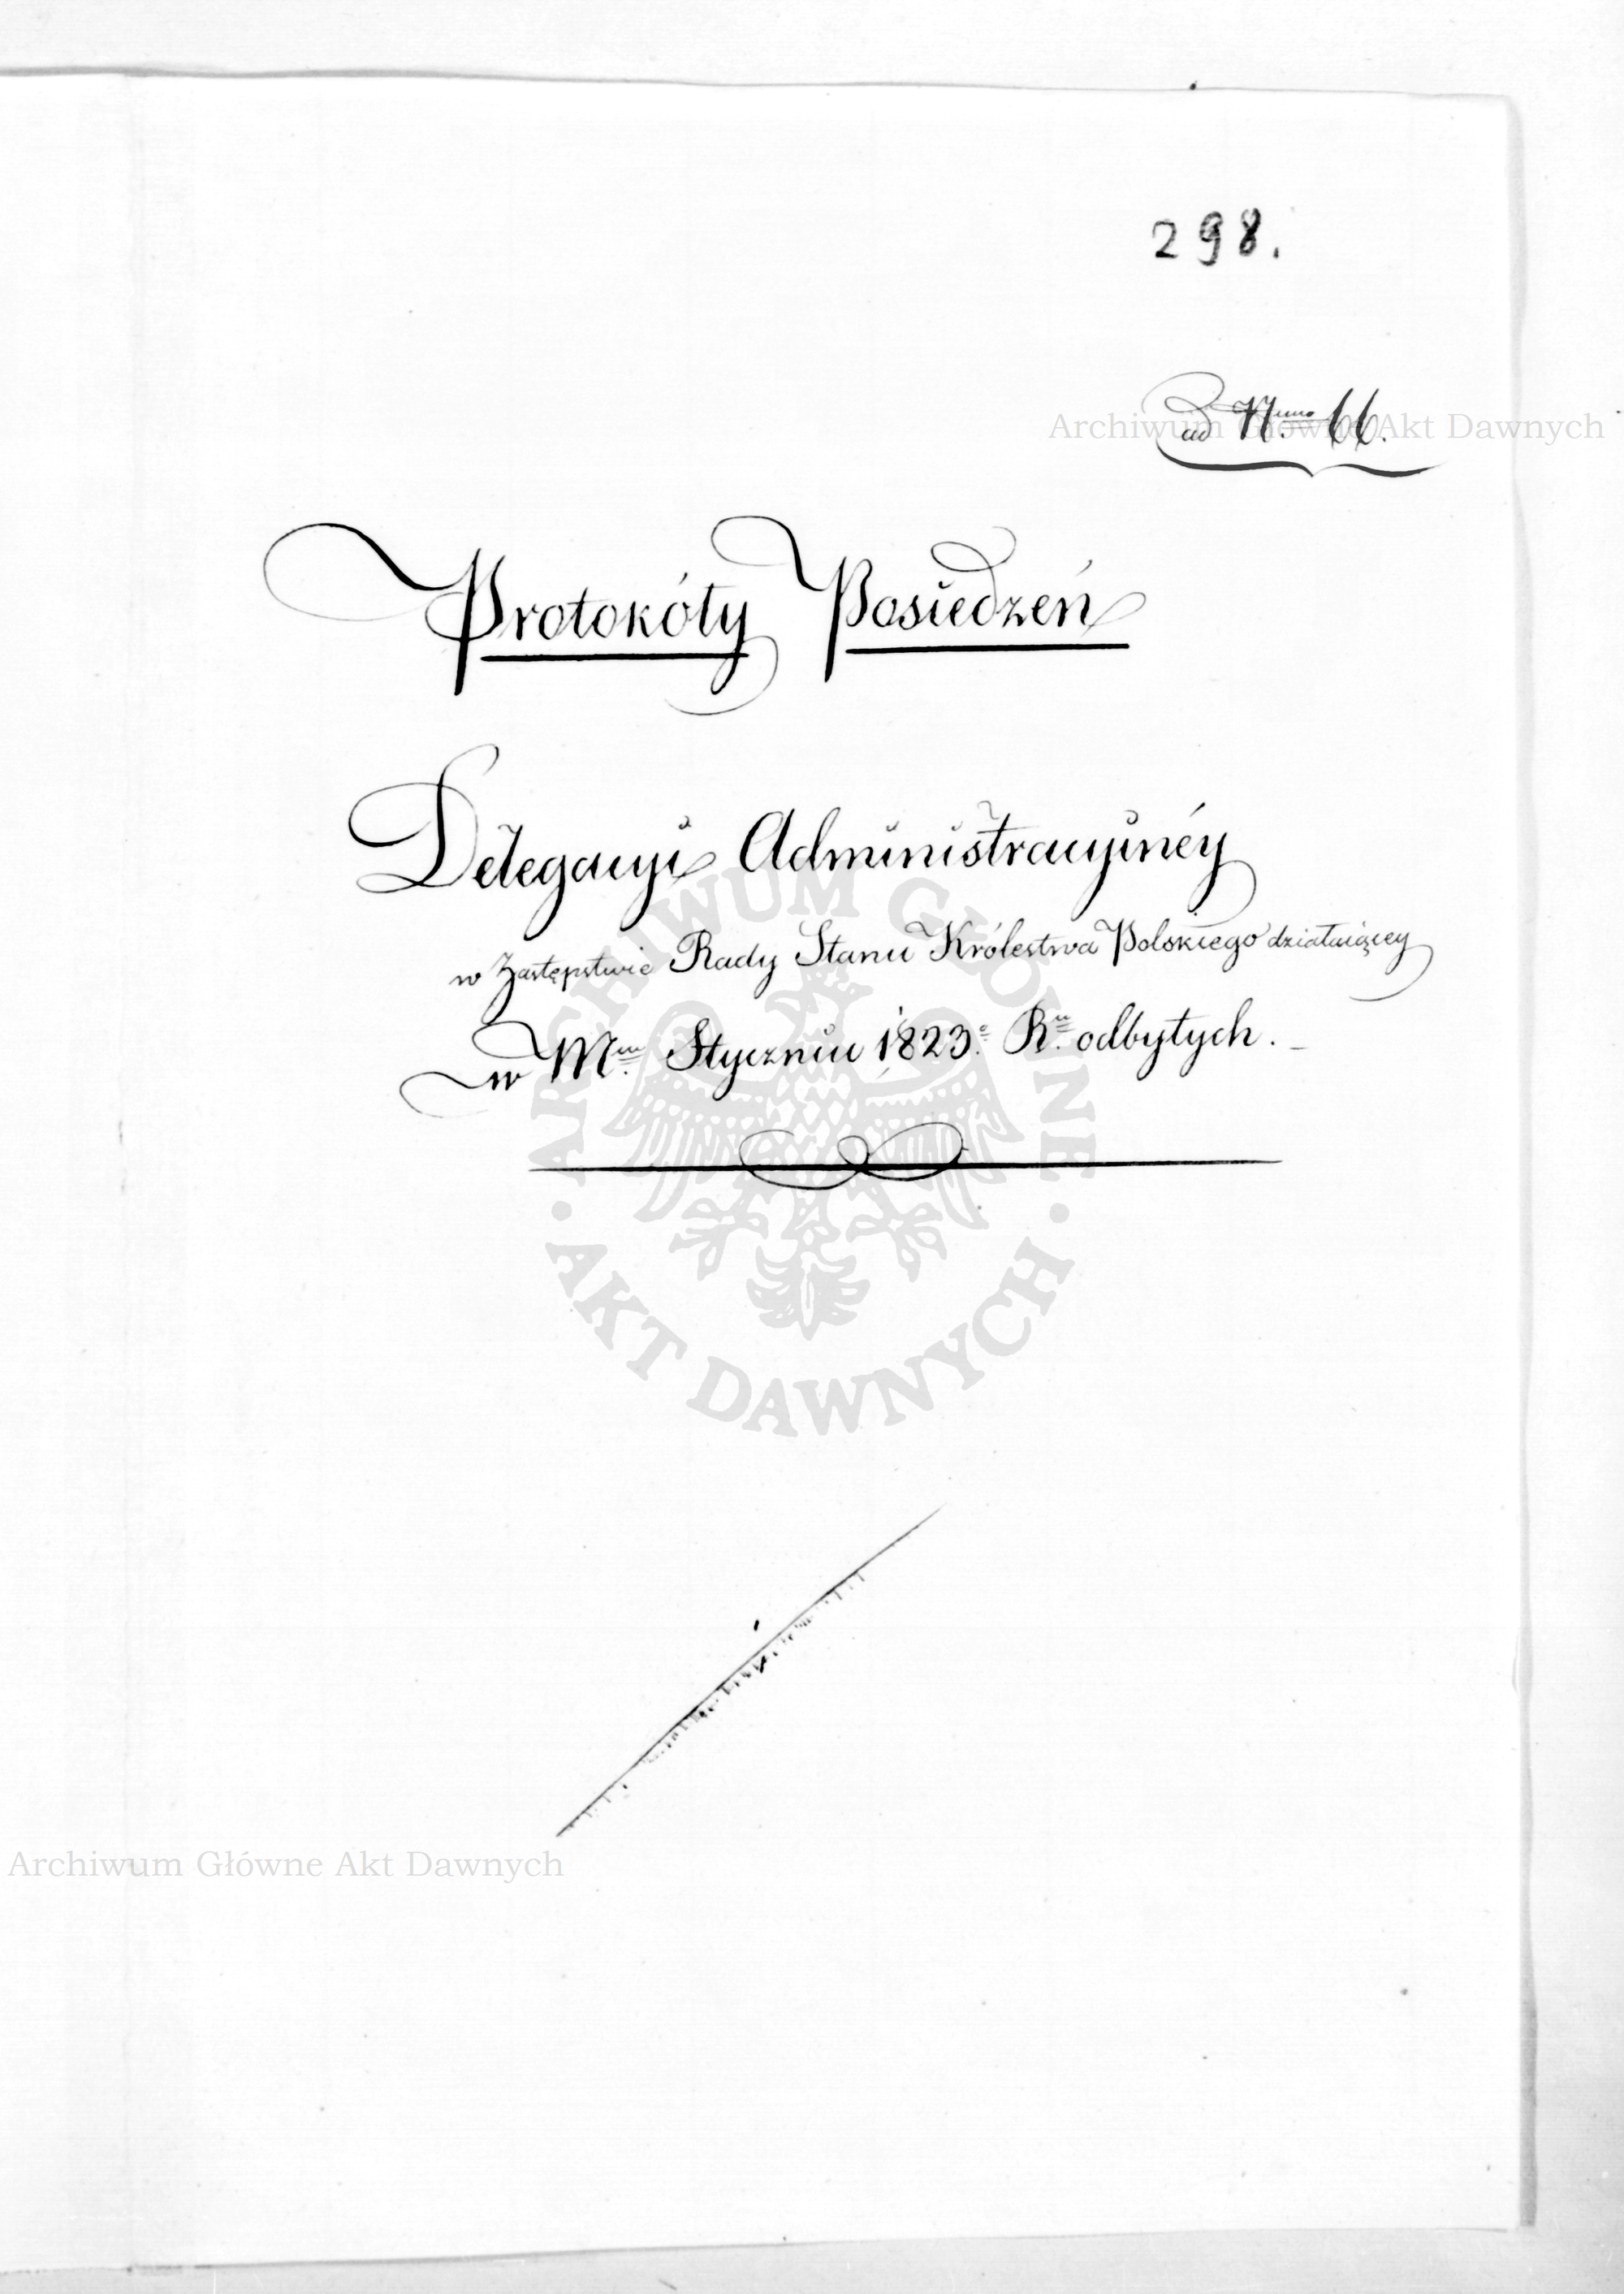 298.
ad Nrum 66.
Archiwum Główne Akt Dawnych
Protokóły Posiedzeń
Delegacyi Administracyinéy
w Zastępstwie Rady Stanu Królestwa Polskiego działaiącey
w Mcu Styczniu 1823. Ru odbytych.
ARCHIWUM GŁÓWNE
AKT DAWNYCH
Archiwum Główne Akt Dawnych